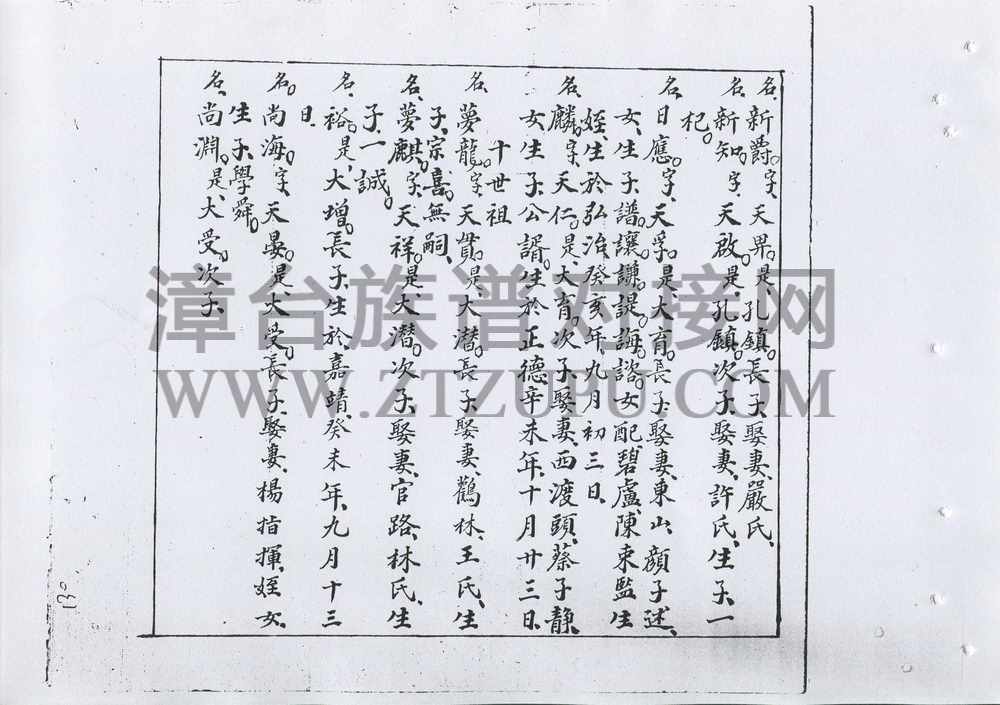 名、新爵。字、天畀。是、孔鎮。長子、娶妻、嚴氏、
名、新知。字、天啟。是、孔鎮。次子、娶妻、許氏、生子、一
杞。
名、日應。字、天孚。是、大育。長子、娶妻、東山、顔子述、
女、生子、譜。讓。謙。諟。誨。諮。女配、碧盧、陳東監生
姪、生於弘治、癸亥年、九月初三日、
名、麟。字、天仁。是、大育。次子、娶妻、西渡頭、蔡子静、
女、生子、公諝。生於正德、辛未年、十月廿三日、
十世祖
名、夢龍。字、天貫。是、大潛。長子、娶妻、鸛林、王氏、生
子、宗喜。無嗣、
名、夢麒。字、天祥。是、大潛。次子、娶妻、官路、林氏、生
子、一誠。
名、裕。是、大增。長子、生於、嘉靖、癸未年、九月十三
日、
名、尚海。字、天晏。是、大受。長子、娶妻、楊指揮、姪女、
生子、學舜。
名、尚淵。是、大受。次子、
130
漳台族谱对接网
WWW.ZTZUPU.COM